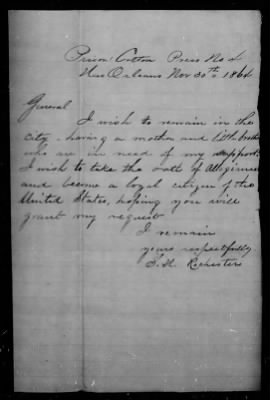 Prison Cotton Press No 4
New Orleans Nov 30th 1864
General
I wish to remain in the
city, having a mother and little brother
who are in need of my support.
I wish to take the oath of Allegiance
and become a loyal citizen of the
United States, hoping you will
grant my request
I remain
yours respectfully